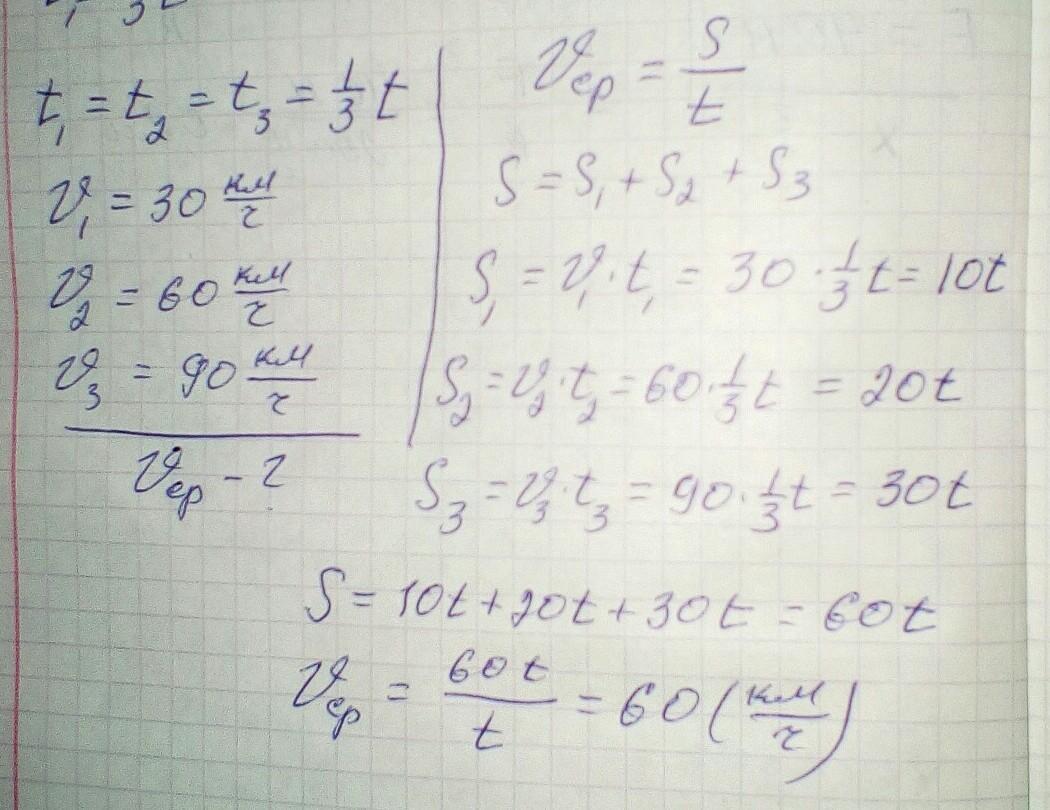 t₁ = t₂ = t₃ = 1/3 t
υ₁ = 30 км/ч
υ₂ = 60 км/ч
υ₃ = 90 км/ч
υср - ?
υср = S/t
S = S₁ + S₂ + S₃
S₁ = υ₁ · t₁ = 30 · 1/3 t = 10t
S₂ = υ₂ · t₂ = 60 · 1/3 t = 20t
S₃ = υ₃ · t₃ = 90 · 1/3 t = 30t
S = 10t + 20t + 30t = 60t
υср = 60t/t = 60 (км/ч)